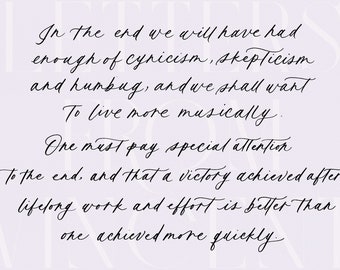 In the end we will have had
enough of cynicism, skepticism
and humbug, and we shall want
to live more musically.
One must pay special attention
to the end, and that a victory achieved after
lifelong work and effort is better than
one achieved more quickly
LETTERS
FROM
VINCENT